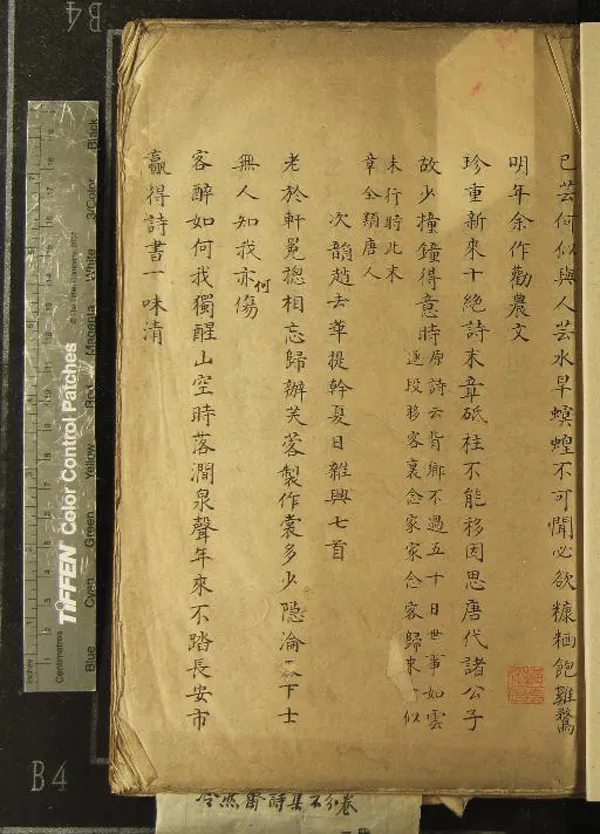 已芸何似與人芸水旱螟蝗不可聞必欲糠粞飽雞鶩
明年余作勸農文
珍重新來十絕詩末章砥柱不能移因思唐代諸公子
故少撞鐘得意時原詩云背鄉不過五十日世事如雲
逐段移客裏念家家念客歸來似
未行時此末
章全類唐人
次韻趙去華提幹夏日雜興七首
老於軒冕摠相忘歸辦芙蓉製作裳多少隐淪下士
無人知我亦何傷
客醉如何我獨醒山空時落澗泉聲年來不踏長安市
贏得詩書一味清
冷然齋詩集不分卷
B4
B4
TIFFEN Color Control Patches
© The Tiffen Company, 2007
Inches
Centimetres
Blue
Cyan
Green
Yellow
Red
Magenta
White
3/Color
Black